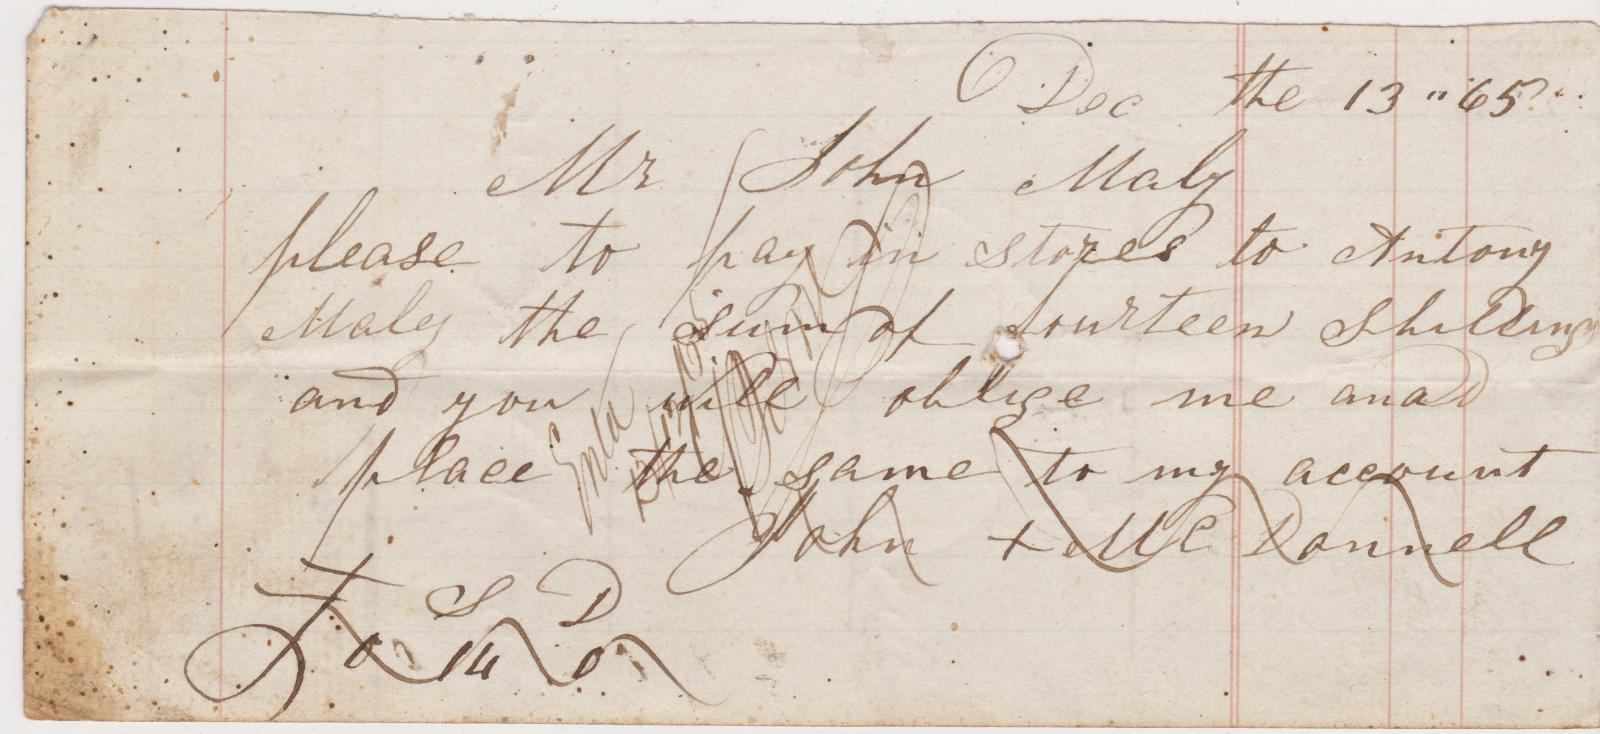 Dec the 13 "65
Mr John Maly
please to pay in stores to Antony
Maley the sum of fourteen Shillings
and you will oblige me and
place the same to my account
John + McDonnell
S D
£ 0 14 0